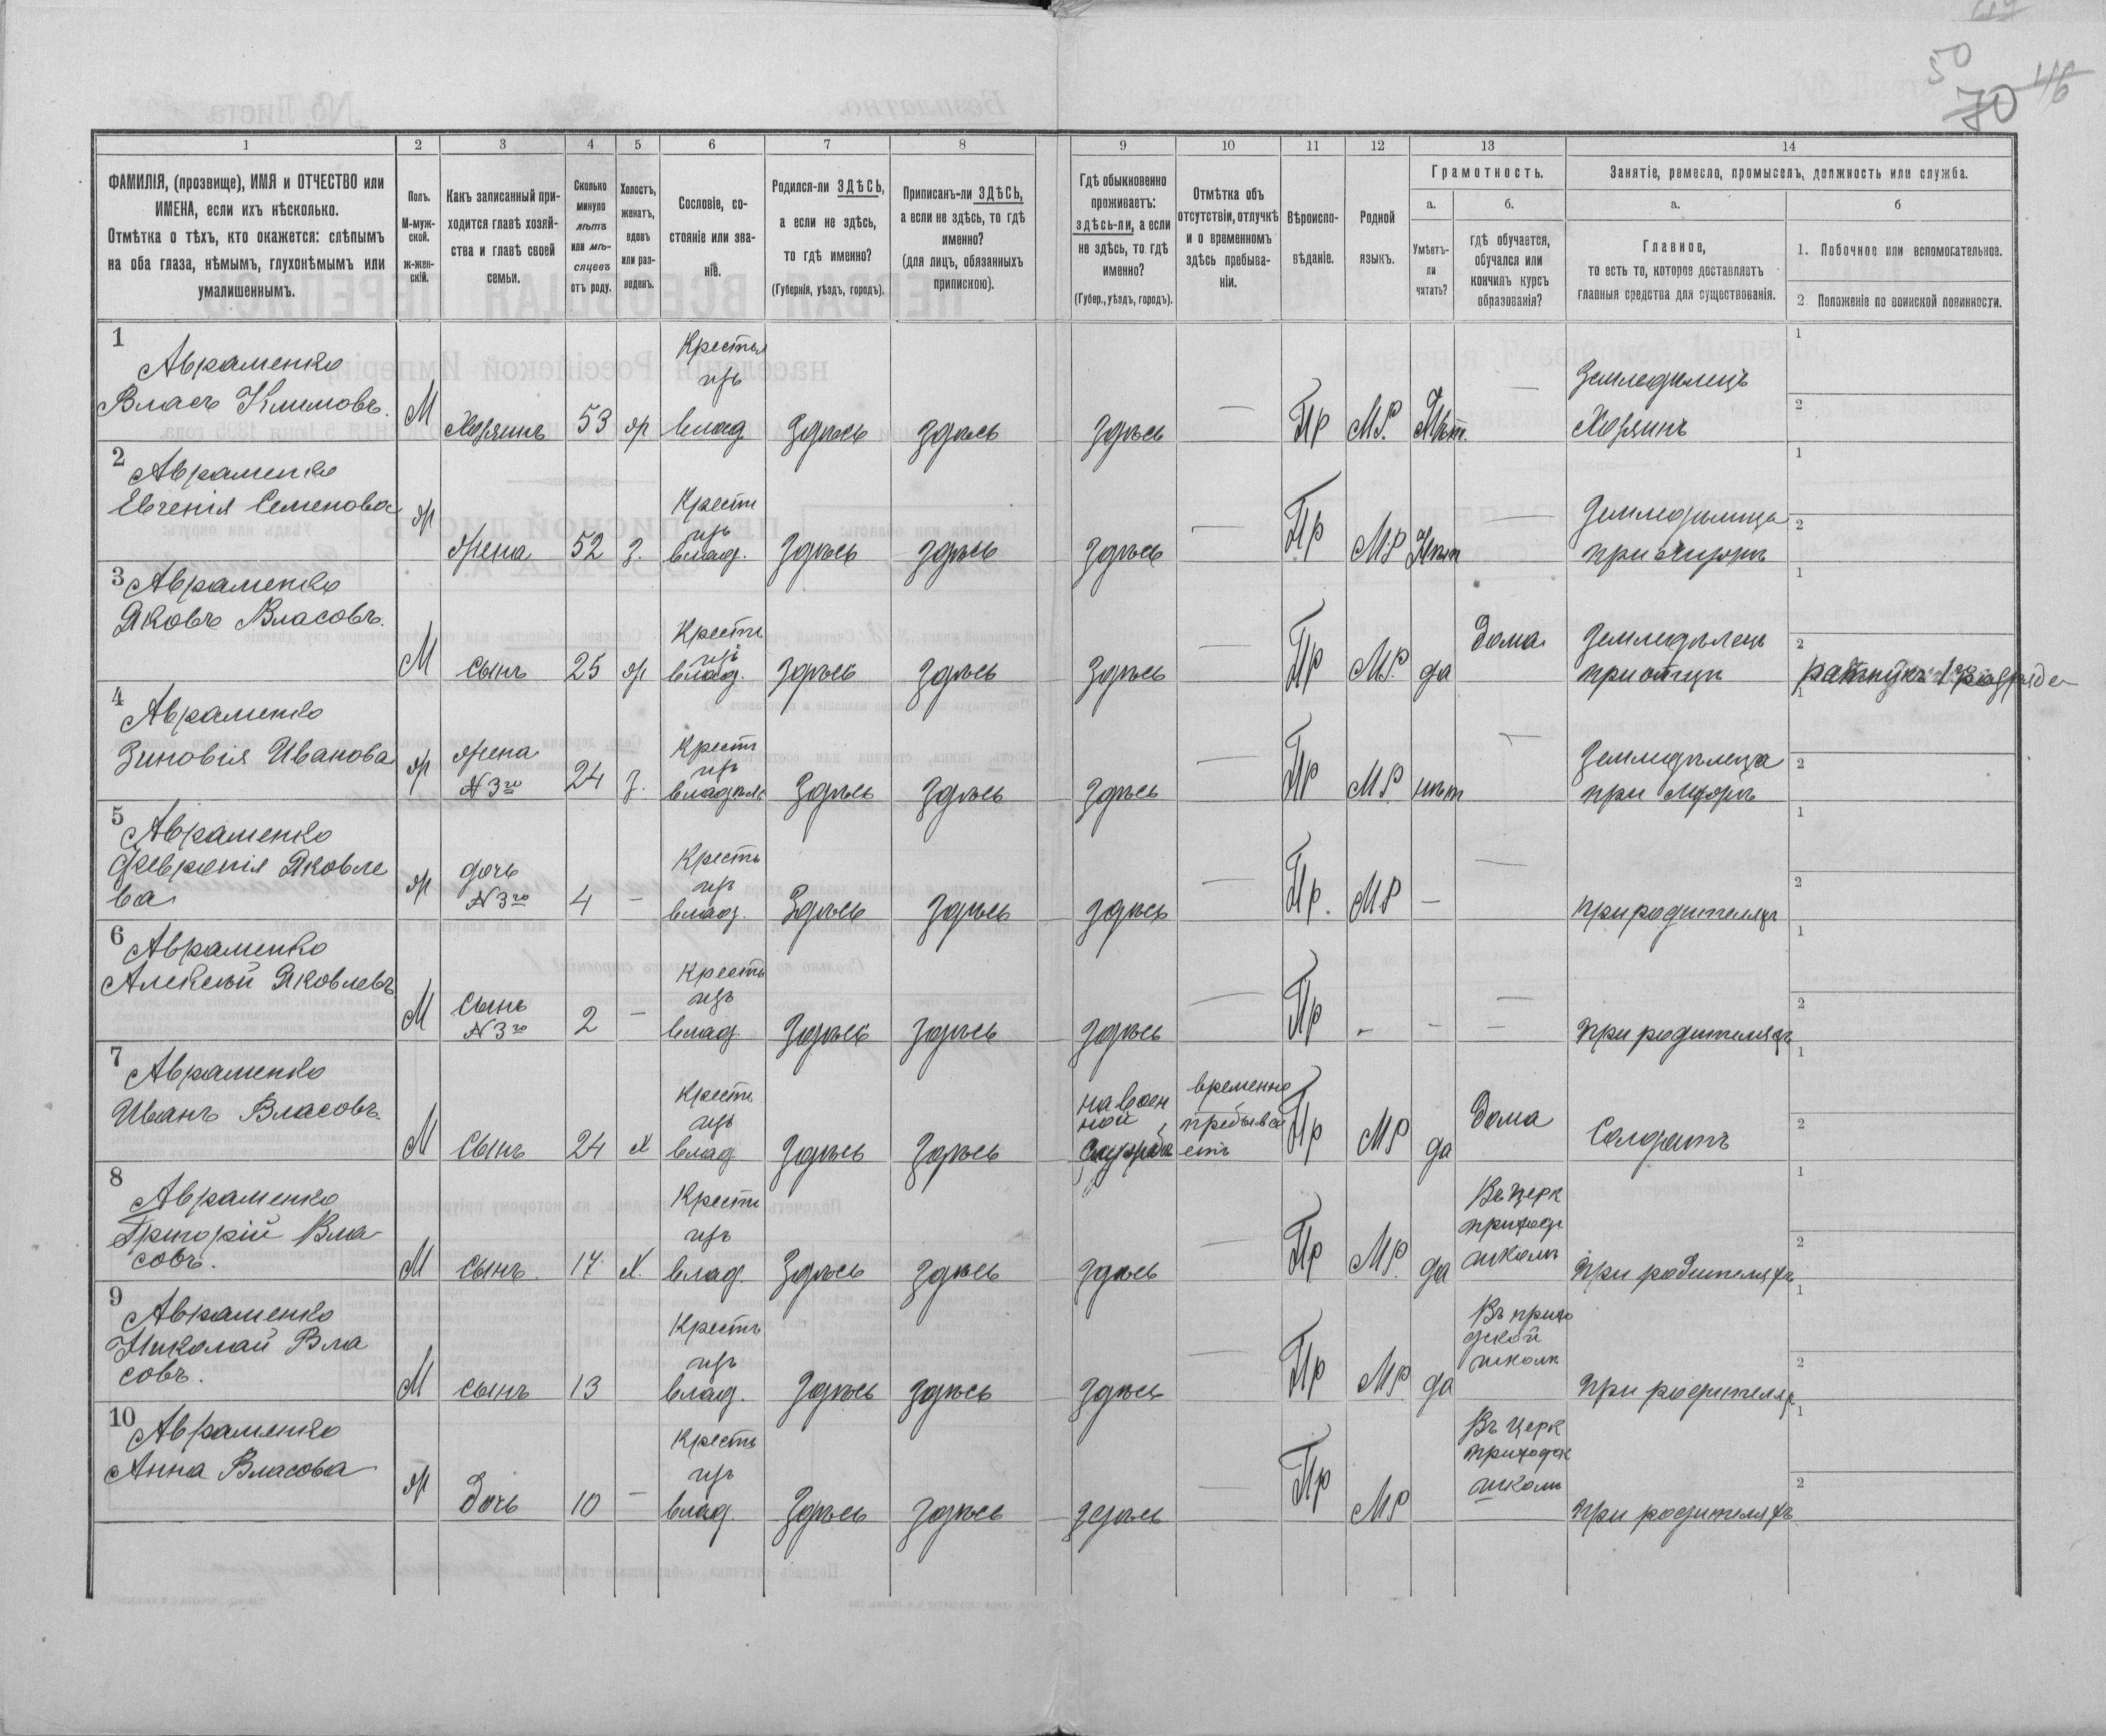 50
70 46
1 2 3 4 5 6 7 8 9 10 11 12 13 14
ФАМИЛІЯ, (прозвище), ИМЯ и ОТЧЕСТВО или
ИМЕНА, если ихъ нѣсколько.
Отмѣтка о тѣхъ, кто окажется: слѣпымъ
на оба глаза, нѣмымъ, глухонѣмымъ или
умалишеннымъ.
Полъ.
М-муж-
ской.
ж-жен-
скій.
Какъ записанный при-
ходится главѣ хозяй-
ства и главѣ своей
семьи.
Сколько
минуло
лѣтъ
или мѣ-
сяцевъ
отъ роду.
Холостъ,
женатъ,
вдовъ
или раз-
веденъ.
Сословіе, со-
стояніе или зва-
ніе.
Родился-ли ЗДѢСЬ,
а если не здѣсь,
то гдѣ именно?
(Губернія, уѣздъ, городъ).
Приписанъ-ли ЗДѢСЬ,
а если не здѣсь, то гдѣ
именно?
(для лицъ, обязанныхъ
припискою).
Гдѣ обыкновенно
проживаетъ:
здѣсь-ли, а если
не здѣсь, то гдѣ
именно?
(Губер., уѣздъ, городъ).
Отмѣтка объ
отсутствіи, отлучкѣ
и о временномъ
здѣсь пребыва-
ніи.
Вѣроиспо-
вѣданіе.
Родной
языкъ.
Грамотность.
а.
Умѣетъ-
ли
читать?
б.
гдѣ обучается,
обучался или
кончилъ курсъ
образованія?
Занятіе, ремесло, промыселъ, должность или служба.
а.
Главное,
то есть то, которое доставляетъ
главныя средства для существованія.
б
1. Побочное или вспомогательное.
2. Положеніе по воинской повинности.
1
Авраменко
Власъ Климовъ.
М Хозяинъ 53 ж
Крестья
изъ
влад
Здѣсь здѣсь здѣсь — Пр М.Р. Нѣт. —
Земледѣлецъ
Хозяинъ
1
2
2
Авраменко
Евгенія Семенова
ж жена 52 з.
Крестн
изъ
влад.
Здѣсь здѣсь здѣсь — Пр М.Р Нѣт —
Земледѣлица
при мужѣ
1
2
3
Авраменко
Яковъ Власовъ.
М сынъ 25 ж
Крестн
изъ
влад.
Здѣсь здѣсь Здѣсь — Пр М.Р. да Дома
Земледѣлецъ
при отцѣ
1
2 ратникъ 1 разряда
4
Авраменко
Зиновія Иванова
ж
жена
№ 3го
24 з.
Крестн
изъ
владѣль
Здѣсь здѣсь здѣсь — Пр М.Р нѣт —
Земледѣлеца
при мужѣ
1
2
5
Авраменко
Февронія Яковле
ва
ж
дочь
№ 3го
4 —
Крестн
изъ
влад.
Здѣсь здѣсь здѣсь — Пр. М.Р — —
при родителяхъ
1
2
6
Авраменко
Алексѣй Яковлевъ
М
сынъ
№ 3го
2 —
Крестн
изъ
влад
Здѣсь здѣсь здѣсь — Пр - - —
при родителяхъ
1
2
7
Авраменко
Иванъ Власовъ
М сынъ 24 х
Крестн
изъ
влад
Здѣсь здѣсь
на воен
ной
службѣ
временно
пребыва
етъ
Пр МР да Дома
Солдатъ
1
2
8
Авраменко
Григорій Вла
совъ.
М сынъ. 17 х.
Крестн
изъ
влад.
Здѣсь здѣсь здѣсь — Пр М.Р. да
Въ церк
приход
школѣ
При родителяхъ
1
2
9
Авраменко
Николай Вла
совъ.
М сынъ 13
Крестн
изъ
влад.
Здѣсь здѣсь здѣсь — Пр М.Р да
Въ прихо
дской
школѣ
При родителях
1
2
10
Авраменко
Анна Власова
ж Дочь 10 —
Крестн
изъ
влад.
Здѣсь здѣсь здѣсь — Пр М.Р
Въ церк
приходск
школѣ
При родителяхъ
1
2